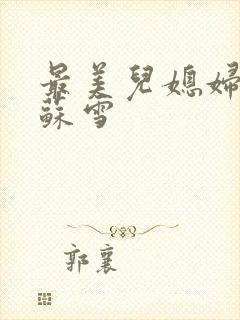 最美兒媳婦
蘇雪
郭襄